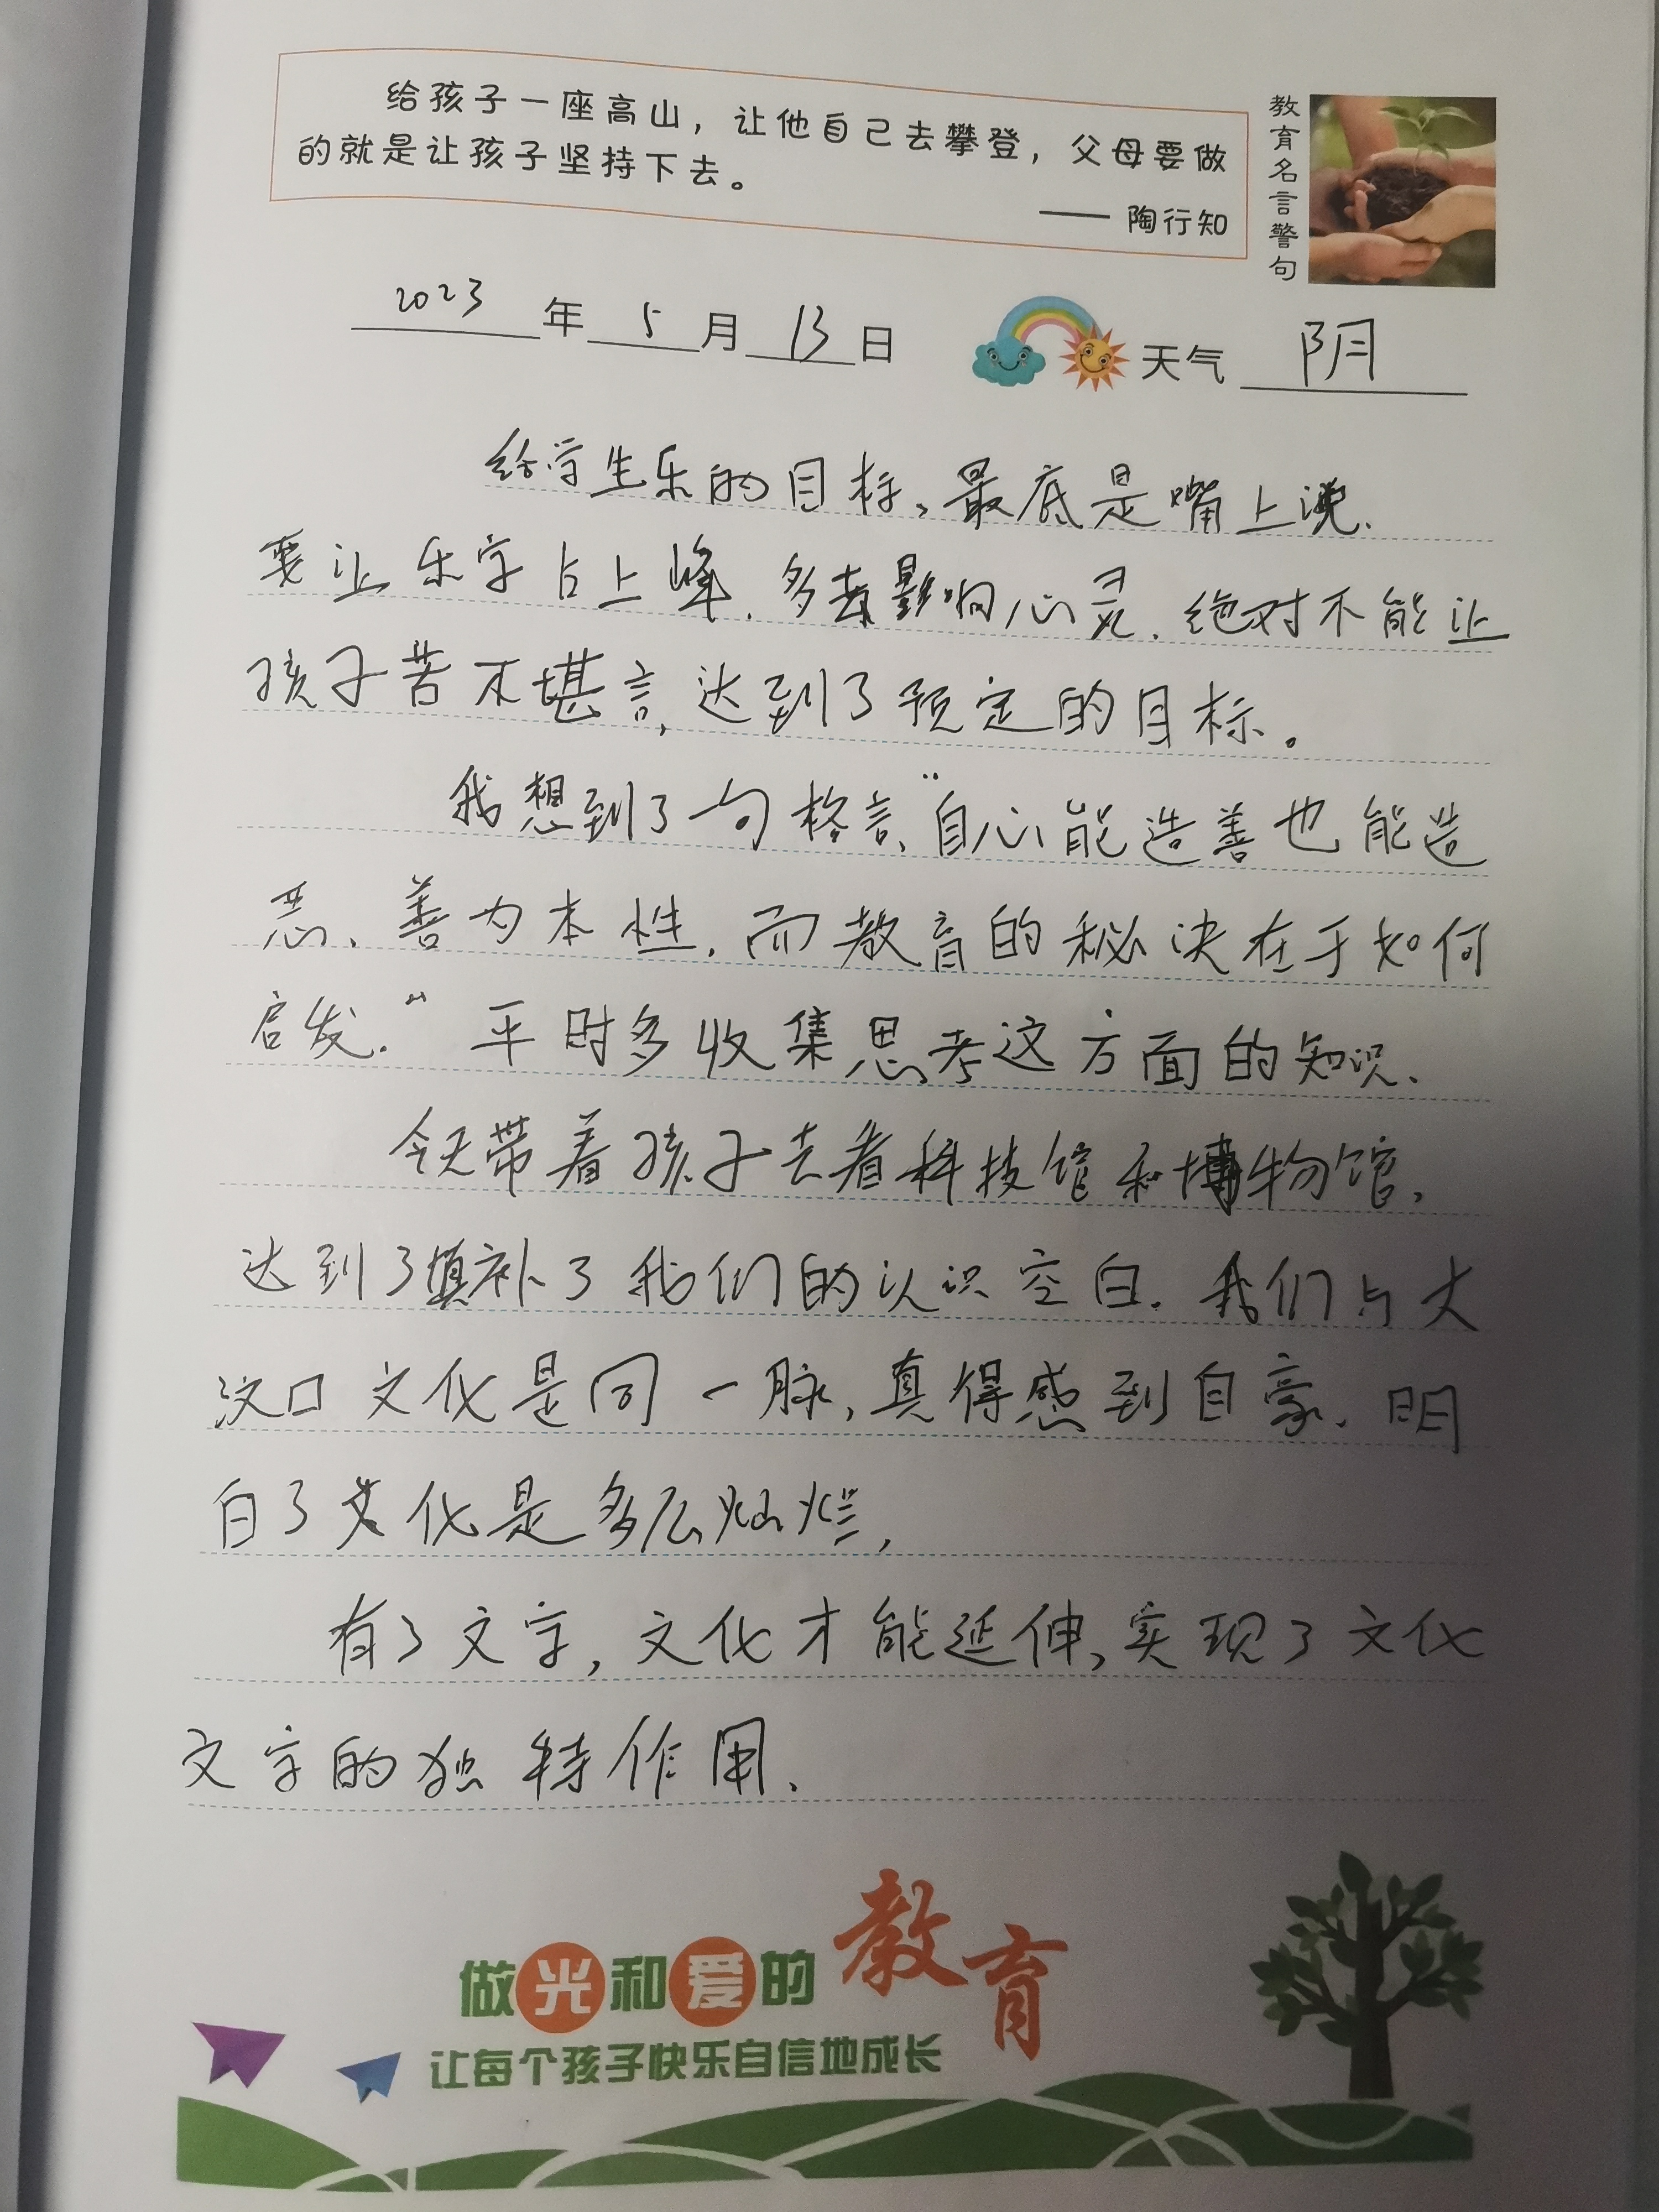 给孩子一座高山，让他自己去攀登，父母要做
的就是让孩子坚持下去。
—— 陶行知
教育名言警句
2023 年 5 月 13 日
天气 阴
给学生乐的目标、最底是嘴上说、
要让乐字占上峰、多去影响心灵、绝对不能让
孩子苦不堪言，达到了预定的目标。
我想到了一句格言、“自心能造善也能造
恶、善为本性，而教育的秘决在于如何
启发。” 平时多收集思考这方面的知识、
今天带着孩子去看科技馆和博物馆，
达到了填补了我们的认识空白. 我们与大
汶口文化是同一脉，真得感到自豪、明
白了文化是多么灿烂，
有了文字，文化才能延伸，实现了文化
文字的独特作用、
做光和爱的教育
让每个孩子快乐自信地成长